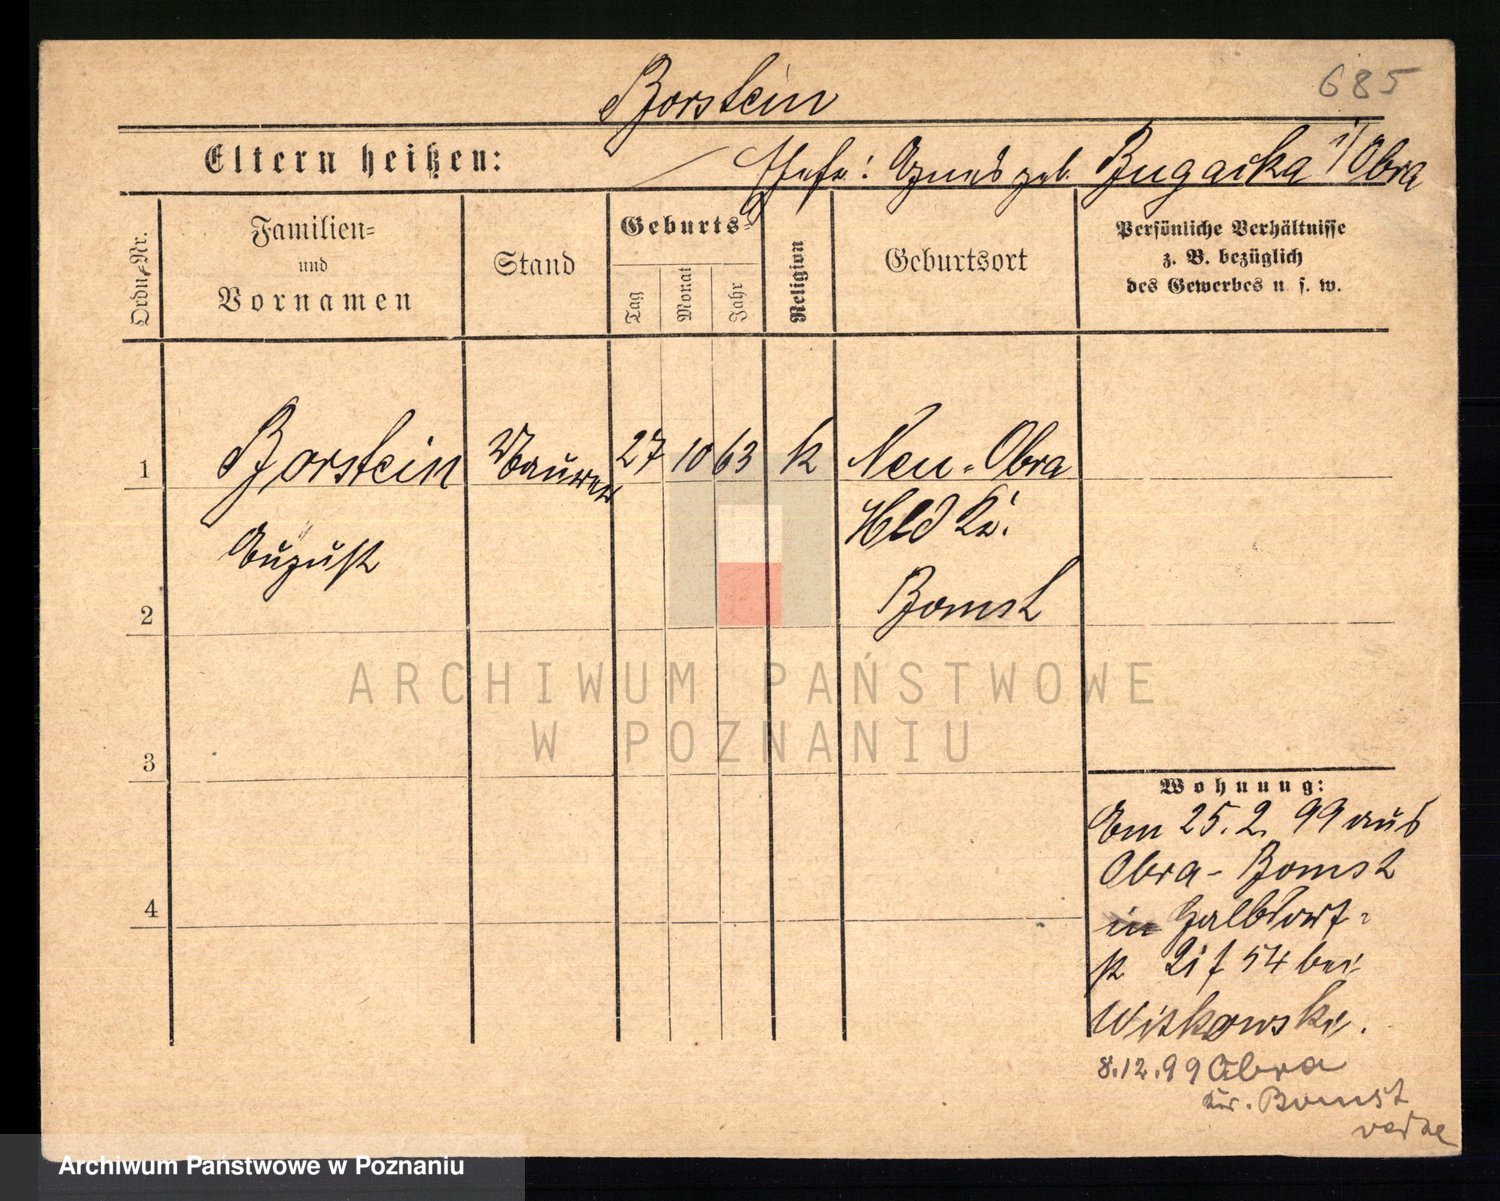 685
Borstein
Eltern heißen: Ehefr: Agnes geb. Bugacka i/Obra
Ordn.-Nr.
Familien-
und
Vornamen
Stand
Geburts-
Tag
Monat
Jahr
Religion
Geburtsort
Persönliche Verhältnisse
z. B. bezüglich
des Gewerbes u. s. w.
1 Borstein Maurer 27 10 63 k Neu-Obra
Hld Kr.
August
Bomst
2
3
4
Wohnung:
Am 25.2.99 aus
Obra-Bomst
in
54 bei
Witkowski.
8.12.99 Obra
Kr. Bomst
ARCHIWUM PAŃSTWOWE
W POZNANIU
Archiwum Państwowe w Poznaniu